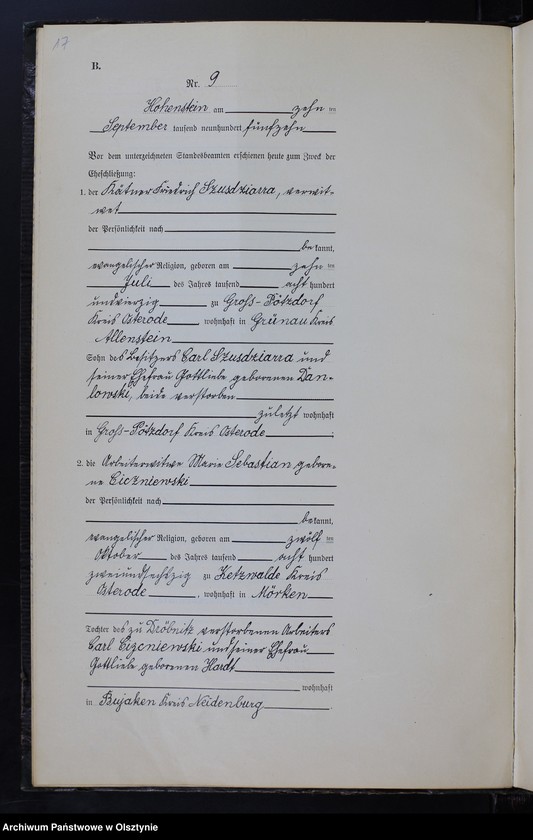 17
B.
Nr. 9
Hohenstein am zehn ten
September tausend neunhundert fünfzehn
Vor dem unterzeichneten Standesbeamten erschienen heute zum Zweck der
Eheschließung:
1. der Kätner Friedrich Szusdziarra, verwit-
wet
der Persönlichkeit nach
be kannt,
evangelischer Religion, geboren am zehn ten
Juli des Jahres tausend acht hundert
undvierzig zu Groß-Pötzdorf
Kreis Osterode wohnhaft in Grünau Kreis
Allenstein
Sohn des Besitzers Carl Szusdziarra und
seiner Ehefrau Gottliebe geborenen Dan-
lowski, beide verstorben
zuletzt wohnhaft
in Groß-Pötzdorf Kreis Osterode ;
2. die Arbeiterwitwe Marie Sebastian gebore-
ne Ciczniewski
der Persönlichkeit nach
be kannt,
evangelischer Religion, geboren am zwölf ten
Oktober des Jahres tausend acht hundert
zweiundsechzig zu Ketzwalde Kreis
Osterode , wohnhaft in Mörken
Tochter des zu Dröbnitz verstorbenen Arbeiters
Carl Cizcniewski und seiner Ehefrau
Gottliebe geborenen Hardt
wohnhaft
in Bujaken Kreis Neidenburg .
Archiwum Państwowe w Olsztynie